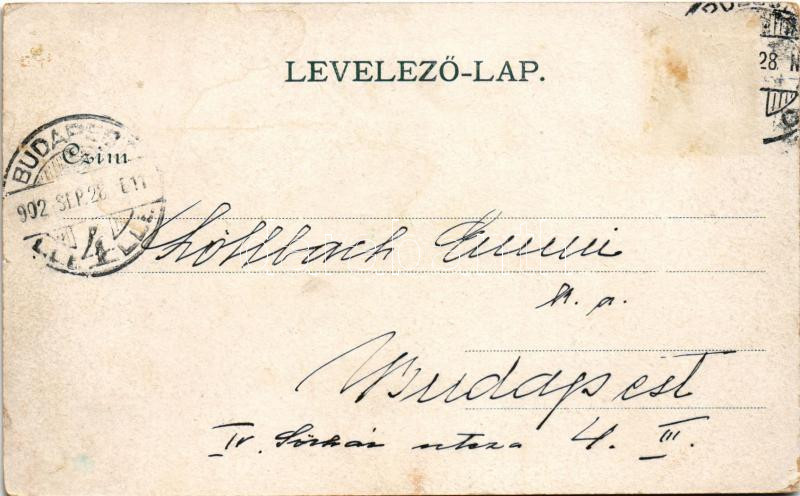 LEVELEZŐ-LAP.
28.
BUDAPEST
Czim
902 SEP. 28
4
Emmi
k. a.
Budapest
IV. utcza 4. III.